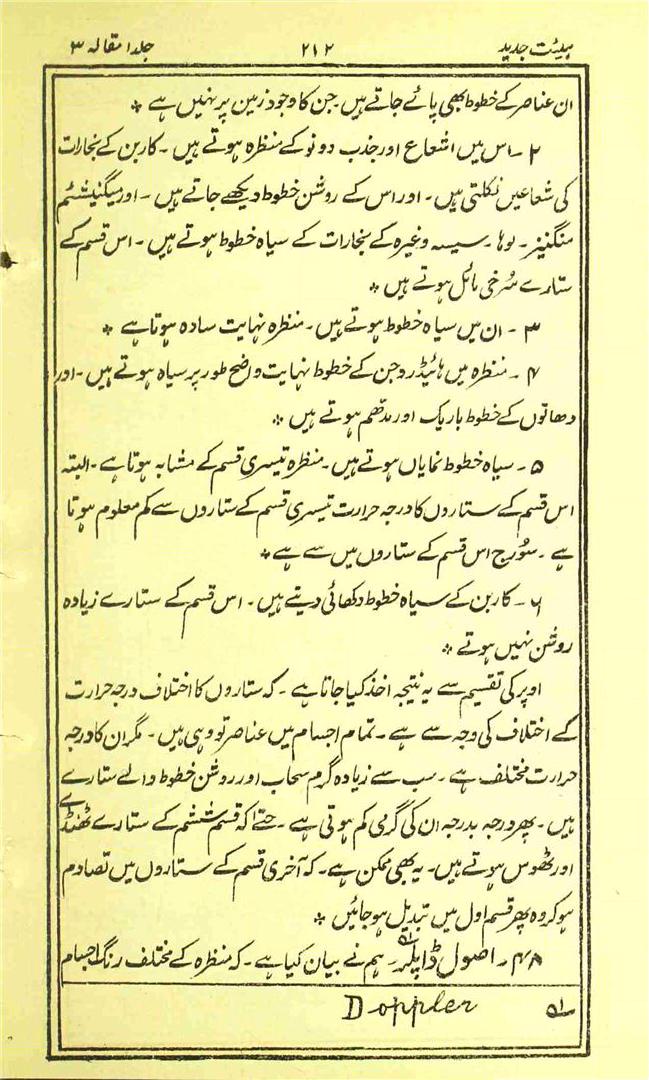 ہیئت جدید ۲۱۲ جلد ا مقالہ ۳
ان عناصر کے خطوط بھی پائے جاتے ہیں جن کا وجود زمین پر نہیں ہے *
۲ ۔ اس میں اشعاع اور جذب دونو کے منظرہ ہوتے ہیں ۔ کاربن کے بخارات
کی شعاعیں نکلتی ہیں ۔ اور اس کے روشن خطوط دیکھے جاتے ہیں ۔ اور میگنیشئم
منگنیز ۔ لوہا ۔ سیسہ وغیرہ کے بخارات کے سیاہ خطوط ہوتے ہیں ۔ اس قسم کے
ستارے سُرخی مائل ہوتے ہیں *
۳ ۔ ان میں سیاہ خطوط ہوتے ہیں ۔ منظرہ نہایت سادہ ہوتا ہے *
۴ ۔ منظرہ میں ہائیڈروجن کے خطوط نہایت واضح طور پر سیاہ ہوتے ہیں ۔ اور
دھاتوں کے خطوط باریک اور مدھم ہوتے ہیں *
۵ ۔ سیاہ خطوط نمایاں ہوتے ہیں ۔ منظرہ تیسری قسم کے مشابہ ہوتا ہے ۔ البتہ
اس قسم کے ستاروں کا درجہ حرارت تیسری قسم کے ستاروں سے کم معلوم ہوتا
ہے ۔ سُورج اس قسم کے ستاروں میں سے ہے *
۶ ۔ کاربن کے سیاہ خطوط دکھائی دیتے ہیں ۔ اس قسم کے ستارے زیادہ
روشن نہیں ہوتے *
اوپر کی تقسیم سے یہ نتیجہ اخذ کیا جاتا ہے ۔ کہ ستاروں کا اختلاف درجہ حرارت
کے اختلاف کی وجہ سے ہے ۔ تمام اجسام میں عناصر تو وہی ہیں ۔ مگر ان کا درجہ
حرارت مختلف ہے ۔ سب سے زیادہ گرم سحاب اور روشن خطوط والے ستارے
ہیں ۔ پھر درجہ بدرجہ ان کی گرمی کم ہوتی ہے ۔ حتےٰ کہ قسم ششم کے ستارے ٹھنڈے
اور ٹھوس ہوتے ہیں ۔ یہ بھی ممکن ہے ۔ کہ آخری قسم کے ستاروں میں تصادم
ہو کر وہ پھر قسم اول میں تبدیل ہو جائیں *
۴۸ ۔ اصول ڈاپلر ۵۱ ۔ ہم نے بیان کیا ہے ۔ کہ منظرہ کے مختلف رنگ اجسام
۵۱ Doppler